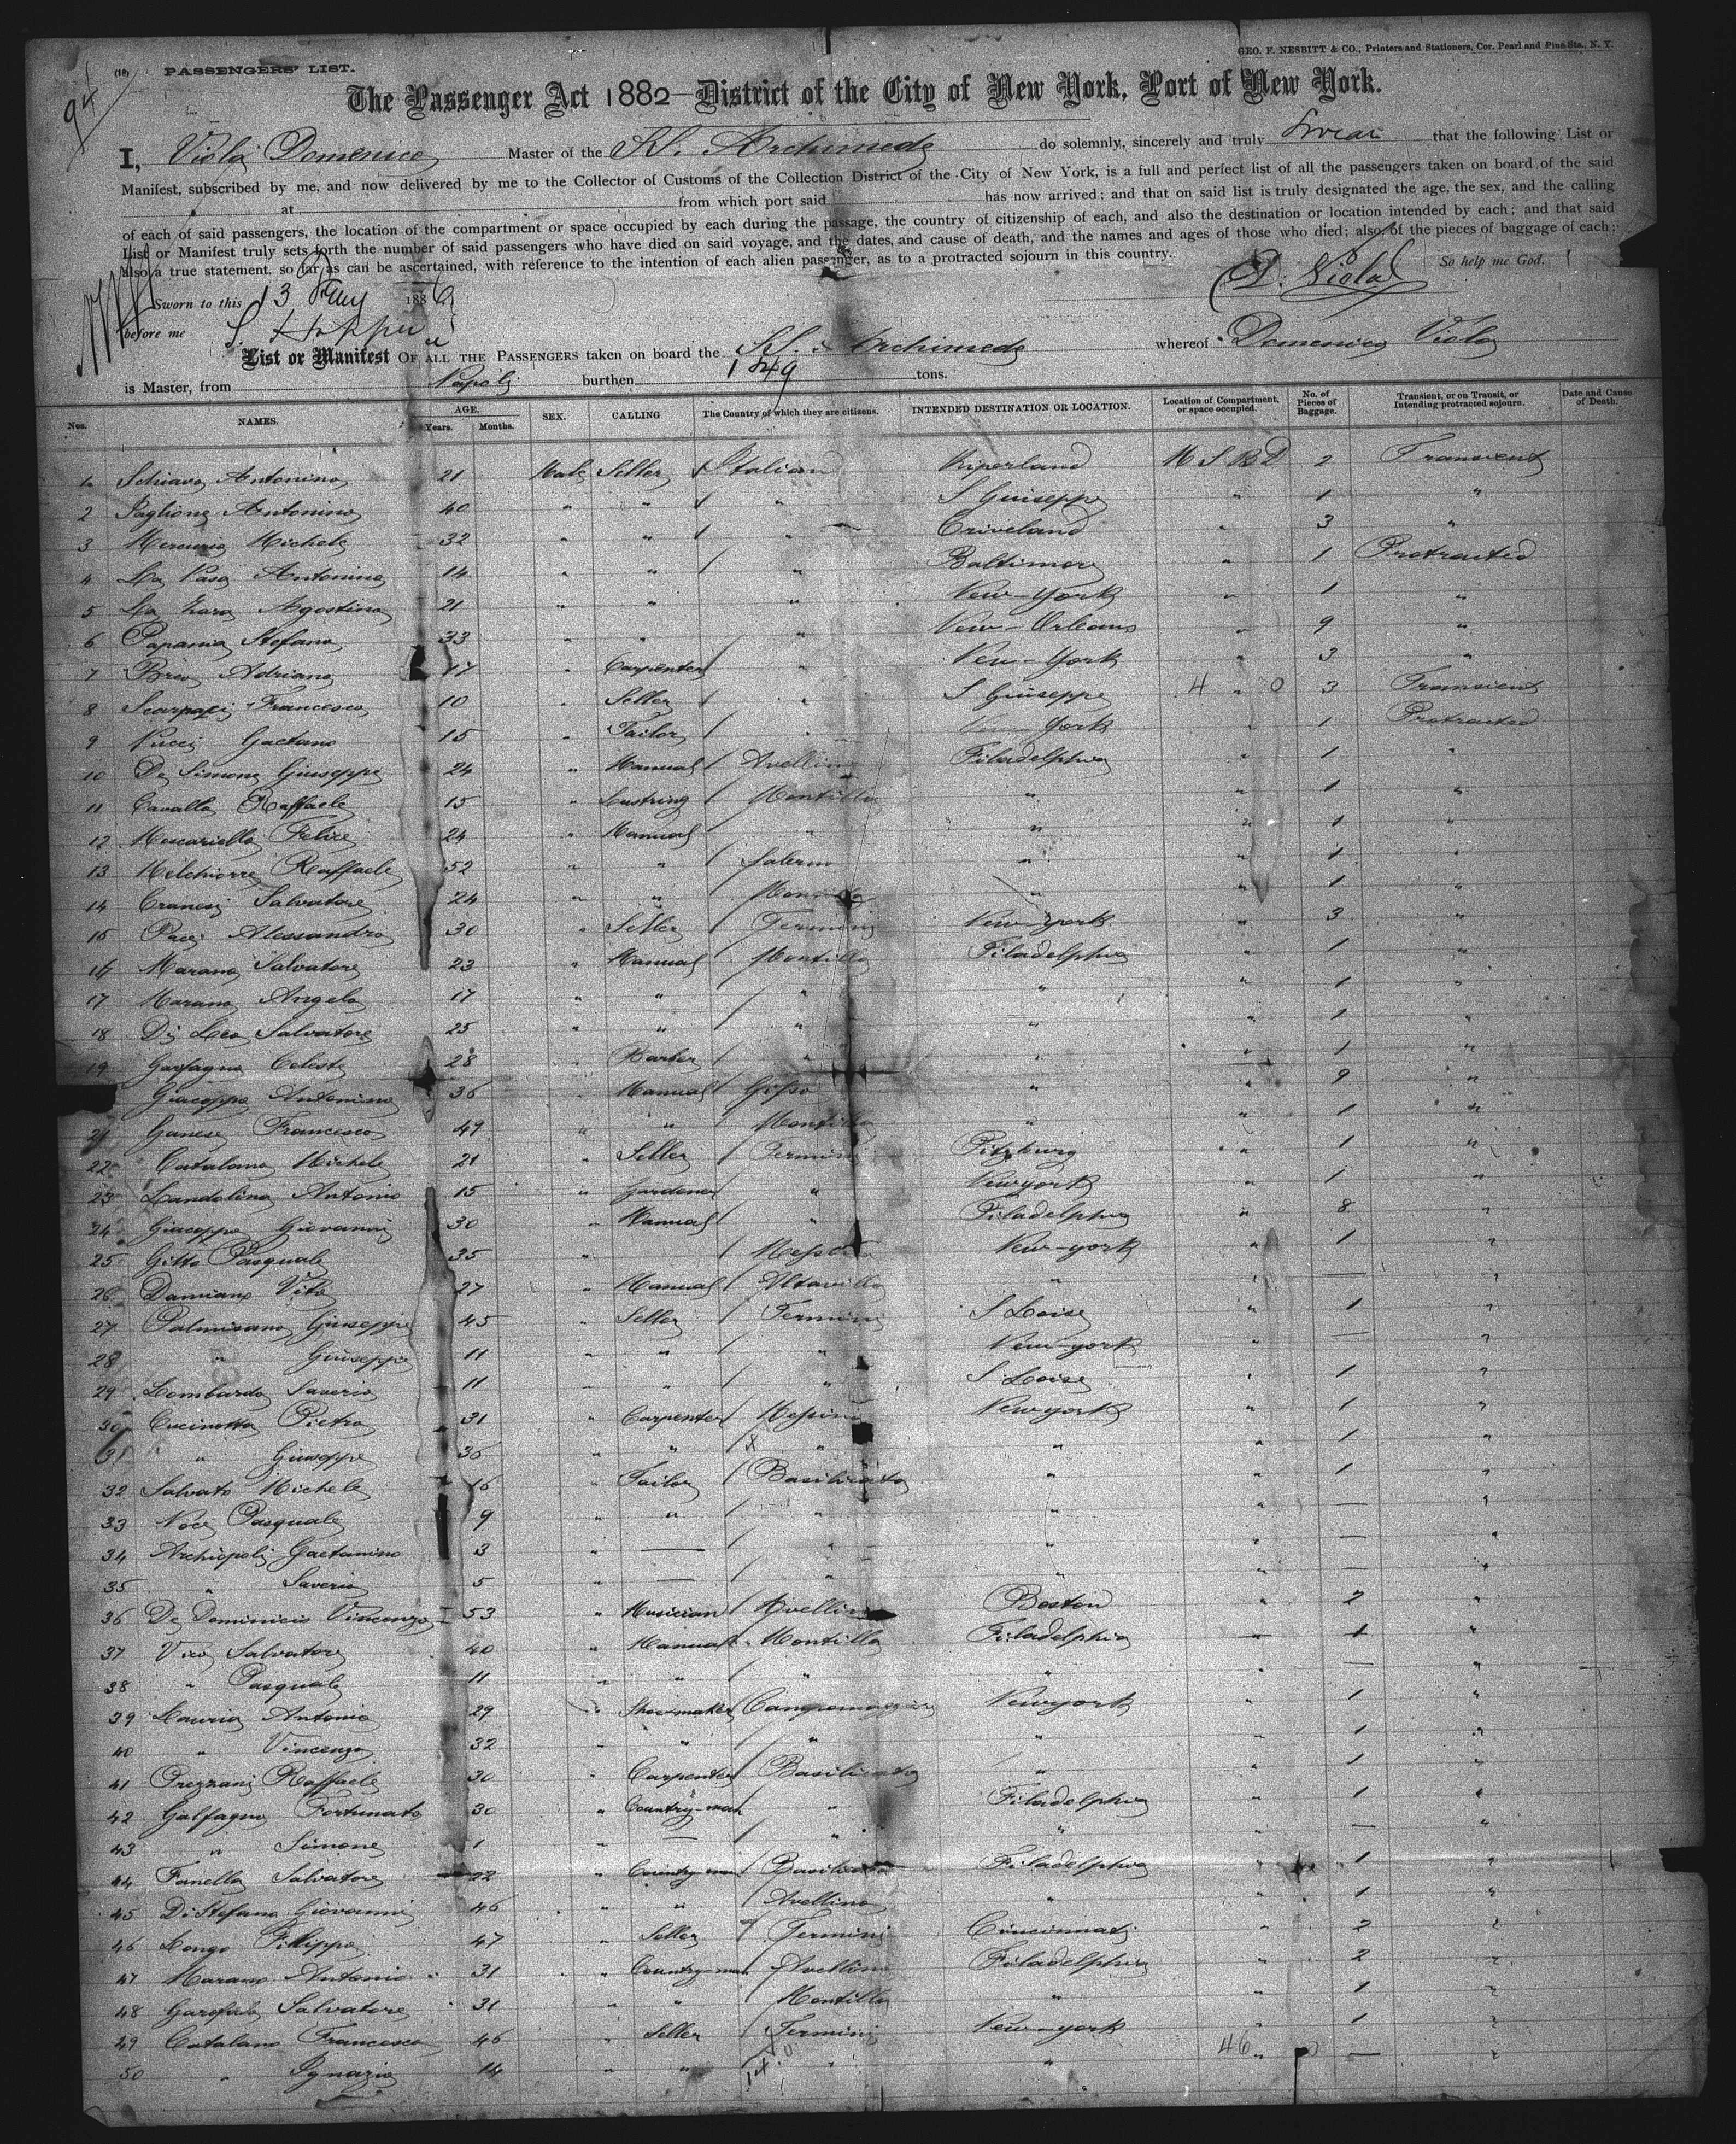 GEO. F. NESBITT & CO., Printers and Stationers, Cor. Pearl and Pine Sts., N. Y.
(18) PASSENGERS' LIST.
The Passenger Act 1882 District of the City of New York, Port of New York.
I, Viola Domenico Master of the SS. Archimede do solemnly, sincerely and truly swear that the following List or
Manifest, subscribed by me, and now delivered by me to the Collector of Customs of the Collection District of the City of New York, is a full and perfect list of all the passengers taken on board of the said
at from which port said has now arrived; and that on said list is truly designated the age, the sex, and the calling
of each of said passengers, the location of the compartment or space occupied by each during the passage, the country of citizenship of each, and also the destination or location intended by each; and that said
List or Manifest truly sets forth the number of said passengers who have died on said voyage, and the dates, and cause of death, and the names and ages of those who died; also, of the pieces of baggage of each;
also a true statement, so far as can be ascertained, with reference to the intention of each alien passenger, as to a protracted sojourn in this country. So help me God.
D. Viola
Sworn to this 13 1886
before me
List or Manifest OF ALL THE PASSENGERS taken on board the SS. Archimede whereof Domenico Viola
is Master, from Napoli burthen tons.
Nos. NAMES. AGE. Years. Months. SEX. CALLING The Country of which they are citizens. INTENDED DESTINATION OR LOCATION. Location of Compartment, or space occupied. No. of Pieces of Baggage. Transient, or on Transit, or Intending protracted sojourn. Date and Cause of Death.
Schiavo Antonino 21 Male Seller Italian 2 Transient
2 Paglione Antonino 40 " " " S Giuseppe " 1 "
3 Mercurio Michele 32 " " " Criveland " 3 "
4 La Antonino 14 " " " Baltimore " 1 Protracted
5 La Zara Agostino 21 " " " New-York " 1 "
6 Papania Stefano 33 " " " New-Orleans " 9 "
7 Adriano 17 " Carpenter " New-York " 3 "
8 Scarpaci Francesco 10 " Seller " S Giuseppe 4 " 0 3 Transient
9 Pucci Gaetano 15 " Tailor " York 1 Protracted
10 De Simone Giuseppe 24 " Manual Avellino Filadelphia " 1 "
11 Cavallo Raffaele 15 " Montilla " " 1 "
12 Moscariello Felice 24 " Manual " " " 1 "
13 Melchiorre Raffaele 52 " " Salerno " " 1 "
14 Salvatore 24 " " " " 1 "
15 Paci Alessandro 30 " Seller Termini New-york " 3 "
16 Marano Salvatore 23 " Manual Montilla Filadelphia " 1 "
17 Marano Angelo 17 " " " " " 1 "
18 Di Leo Salvatore 25 " " " " " 1 "
19 Celeste 28 " Barber " " " 1 "
Giacoppo Antonino 36 " Manual Gifso " " 9 "
21 Ganese Francesco 49 " " Montilla " " 1 "
22 Catalano Michele 21 " Seller Termini Pitzburg " 1 "
23 Landolino Antonio 15 " Gardener " Newyork " 1 "
24 Giacoppo Giovanni 30 " Manual " Filadelphia " 8 "
25 Gitto Pasquale 35 " New-york " 1 "
26 Damiano Vito 27 " Manual Altavilla " " — "
27 Palmisano Giuseppe 45 " Seller Termini S Loise " 1 "
28 " Giuseppe 11 " " " New-york " — "
29 Lombardo Saverio 11 " " " S Loise " 1 "
30 Cucinotta Pietro 31 " Carpenter Messina Newyork " 1 "
31 " Giuseppe 36 " " x " " " 1 "
32 Salvato Michele 16 " Tailor Basilicata " " 1 "
33 Noce Pasquale 9 " " " " " — "
34 Archiopoli Gaetanino 3 " — " " " — "
35 " Saverio 5 " — " " " — "
36 De Dominicis Vincenzo 53 " Musician Avellino Boston " 2 "
37 Vico Salvatore 40 " Manual Montilla Filadelphia 1 "
38 " Pasquale 11 " " " " " — "
39 Lauria Antonio 29 " Shoe-maker Campomaggiore Newyork " 1 "
40 " Vincenzo 32 " " " " " 1 "
41 Raffaele 30 " Carpenter Basilicata " " 1 "
42 Galfagno Fortunato 30 " Country-man " Filadelphia " 1 "
43 " Simone 1 " — " " " — "
44 Fanella Salvatore 22 " Country-man Basilicata Filadelphia " 1 "
45 Di Stefano Giovanni 46 " " Avellino " " 1 "
46 Longo Filippo 47 " Seller Termini Cincinnati " 2 "
47 Marano Antonio 31 " Country-man Avellino Filadelphia " 2 "
48 Garofalo Salvatore 31 " " Montilla " " 1 "
49 Catalano Francesco 46 " Seller Termini New-york " 1 "
50 " Ignazio 14 " " " " 46 " — "